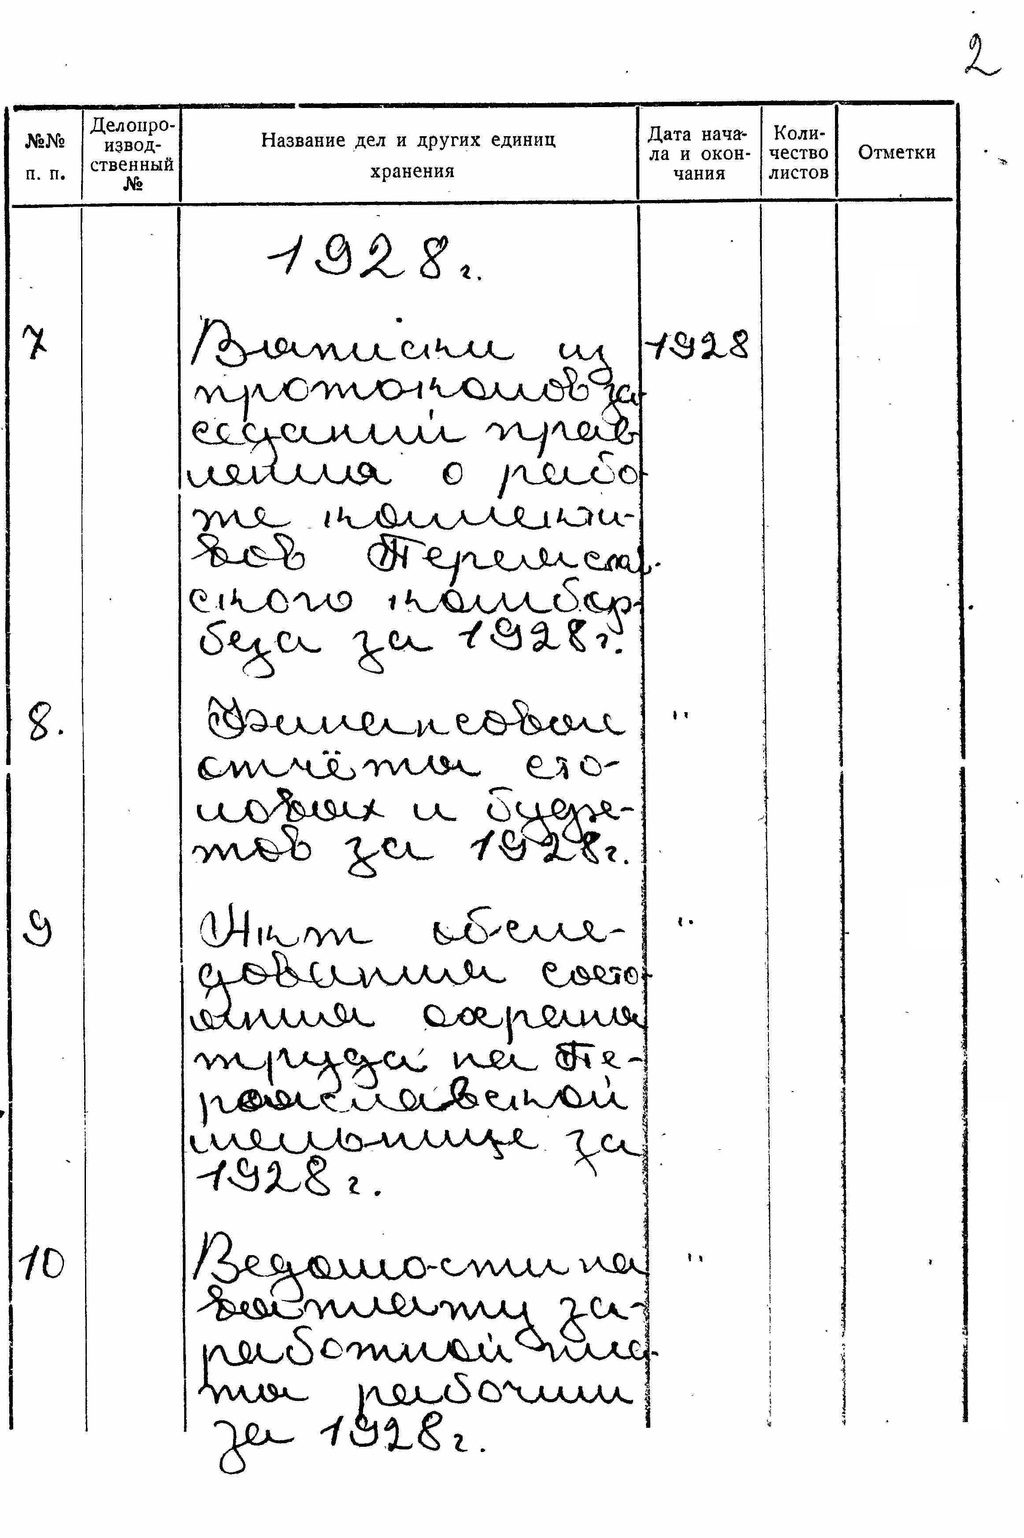 2
№№ п. п.
Делопро-
извод-
ственный
№
Название дел и других единиц
хранения
Дата нача-
ла и окон-
чания
Коли-
чество
листов
Отметки
1928 г.
7
Выписки из
1928
протоколов за-
седаний прав
ления о рабо-
те коллекти-
вов Переяслав-
ского комбор-
беза за 1928 г.
8.
Финансовые
"
отчёты сто-
ловых и буфе-
тов за 1928 г.
9
Акт обсле-
"
дования состо-
яния охраны
труда на Пе-
реяславской
мельнице за
1928 г.
10
Ведомости на
"
выплату за-
работной пла-
ты рабочим
за 1928 г.